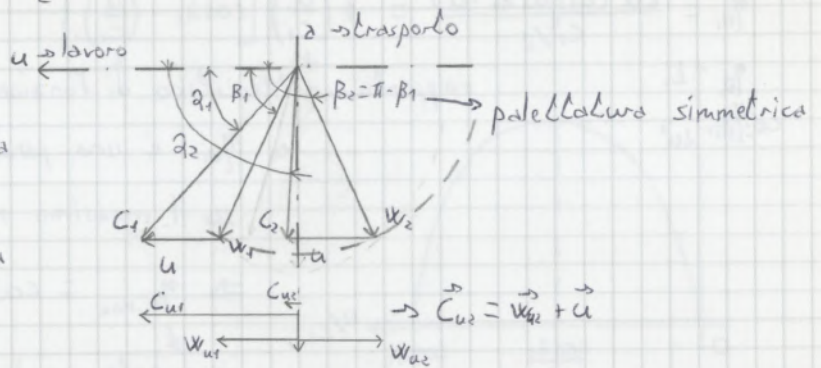 a → trasporto
u → lavoro
α₁ β₁ β₂ = π - β₁ → palettatura simmetrica
α₂
a
C₁ C₂ w₂
u w₁ u
C_{u1} C_{u2} → \vec{C}_{u2} = \vec{w}_{u2} + \vec{u}
w_{u1} w_{u2}